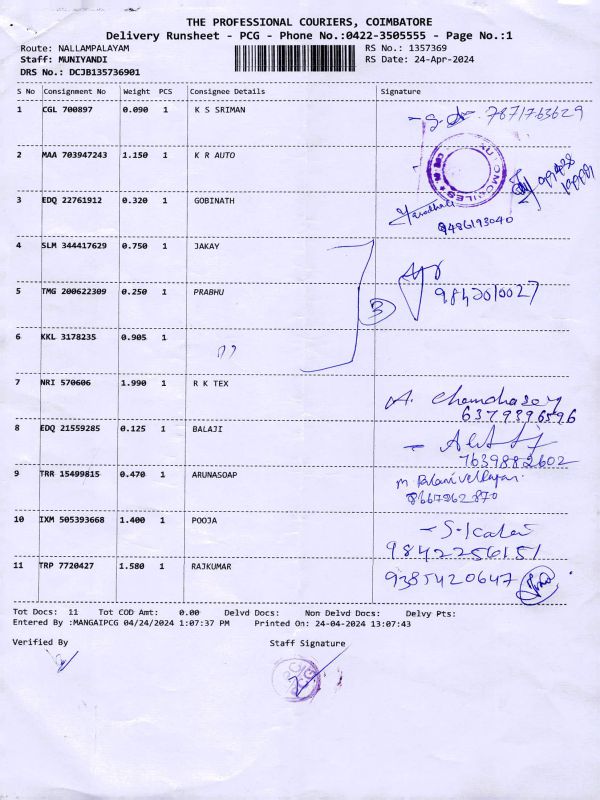 THE PROFESSIONAL COURIERS, COIMBATORE
Delivery Runsheet - PCG - Phone No.:0422-3505555 - Page No.:1
Route: NALLAMPALAYAM RS No.: 1357369
Staff: MUNIYANDI RS Date: 24-Apr-2024
DRS No.: DCJB135736901
S No Consignment No Weight PCS Consignee Details Signature
1 CGL 700897 0.090 1 K S SRIMAN 7871763629
2 MAA 703947243 1.150 1 K R AUTO
AUTOMOBILES
3 EDQ 22761912 0.320 1 GOBINATH
9486193040
4 SLM 344417629 0.750 1 JAKAY
5 TMG 200622309 0.250 1 PRABHU
3
6 KKL 3178235 0.905 1
7 NRI 570606 1.990 1 R K TEX A.
6379396596
8 EDQ 21559285 0.125 1 BALAJI
7639882602
9 TRR 15499815 0.470 1 ARUNASOAP
10 IXM 505393668 1.400 1 POOJA
9842256151
11 TRP 7720427 1.580 1 RAJKUMAR 9385420647
Tot Docs: 11 Tot COD Amt: 0.00 Delvd Docs: Non Delvd Docs: Delvy Pts:
Entered By :MANGAIPCG 04/24/2024 1:07:37 PM Printed On: 24-04-2024 13:07:43
Verified By Staff Signature
PCG